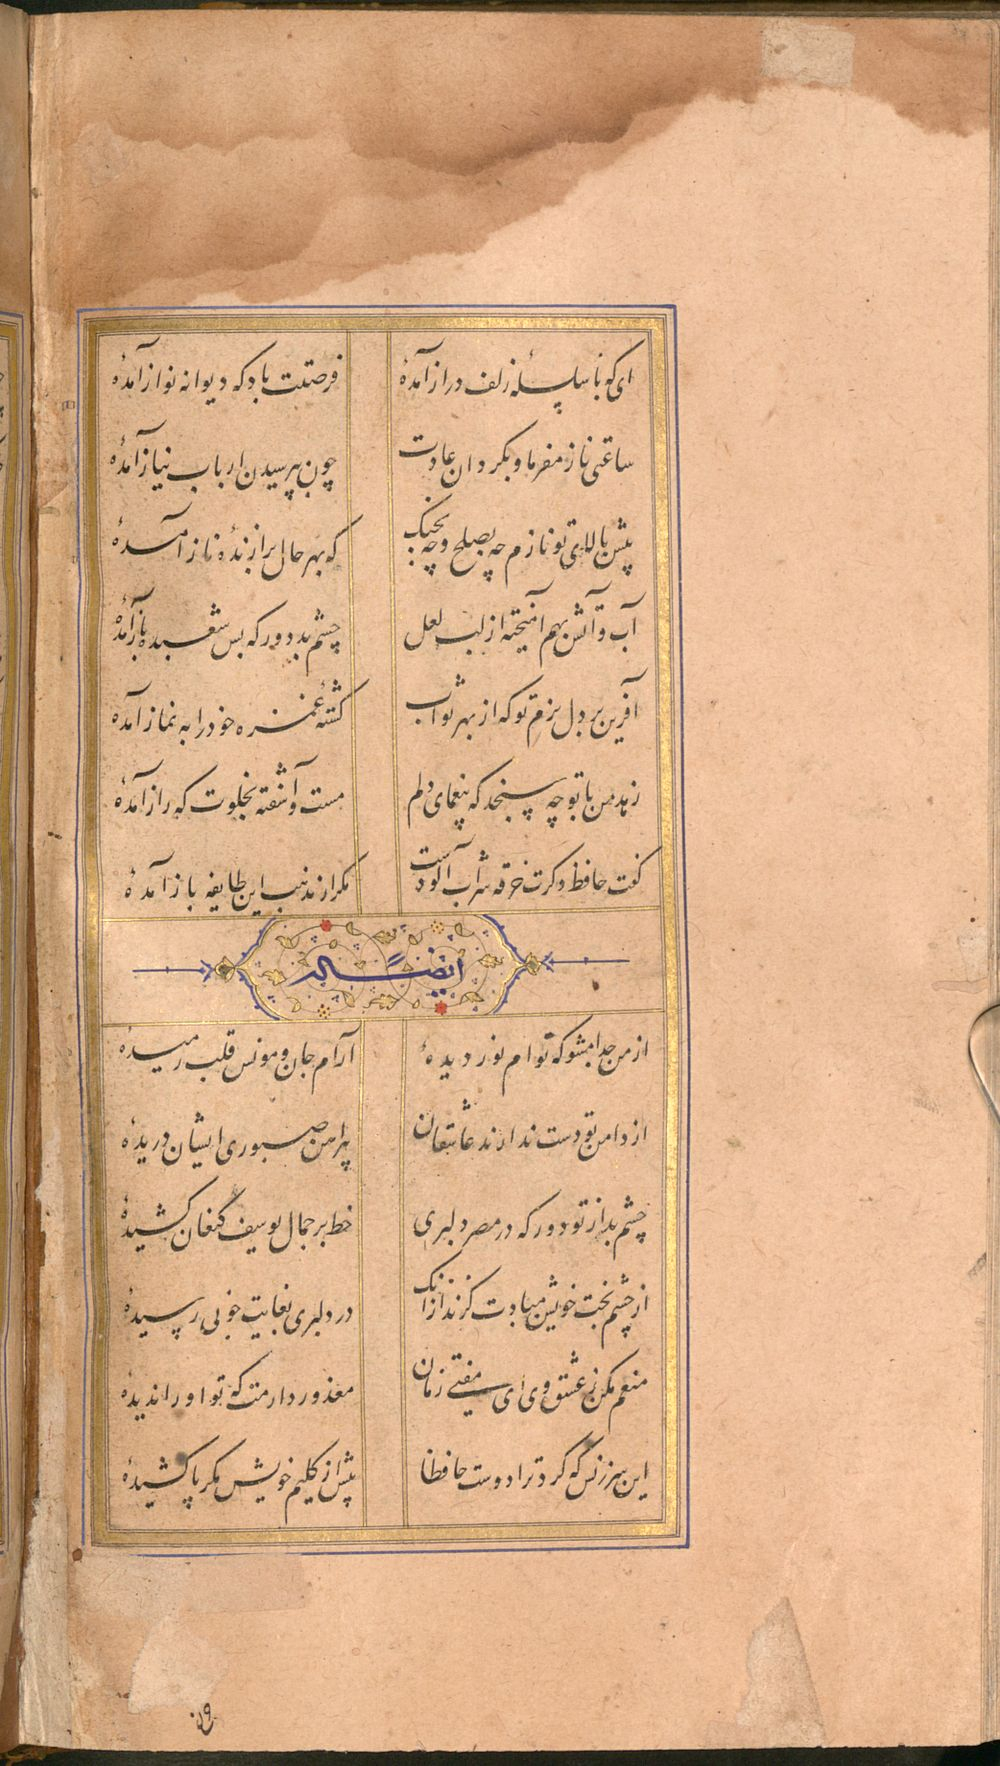 ای که با سلسلهٔ زلف دراز آمدهٔ
فرصتت باد که دیوانه نواز آمدهٔ
ساعتی ناز مفرما و بگردان عادت
چون بپرسیدن ارباب نیاز آمدهٔ
پیش بالای تو نازم چه بصلح و چه بجنگ
که بهر حال برازندهٔ ناز آمدهٔ
آب و آتش بهم آمیختهٔ از لب لعل
چشم بد دور که بس شعبده باز آمدهٔ
آفرین بر دل نرم تو که از بهر ثواب
کشتهٔ غمزه خود را به نماز آمدهٔ
زهد من با تو چه سنجد که یغمای دلم
مست و آشفته بخلوت که راز آمدهٔ
گفت حافظ دگرت خرقه شراب آلودست
مگر از مذهب این طایفه باز آمدهٔ
ایضاً له
از من جدا مشو که تو ام نور دیدهٔ
آرام جان و مونس قلب رمیدهٔ
از دامن تو دست ندارند عاشقان
پیراهن صبوری ایشان دریدهٔ
چشم بد از تو دور که در مصر دلبری
خط بر جمال یوسف کنعان کشیدهٔ
از چشم بخت خویش مبادت گزند ازانک
در دلبری بغایت خوبی رسیدهٔ
منعم مکن ز عشق وی ای مفتی زمان
معذور دارمت که تو او را ندیدهٔ
این سرزنش که کرد ترا دوست حافظا
پیش از گلیم خویش مگر پا کشیدهٔ